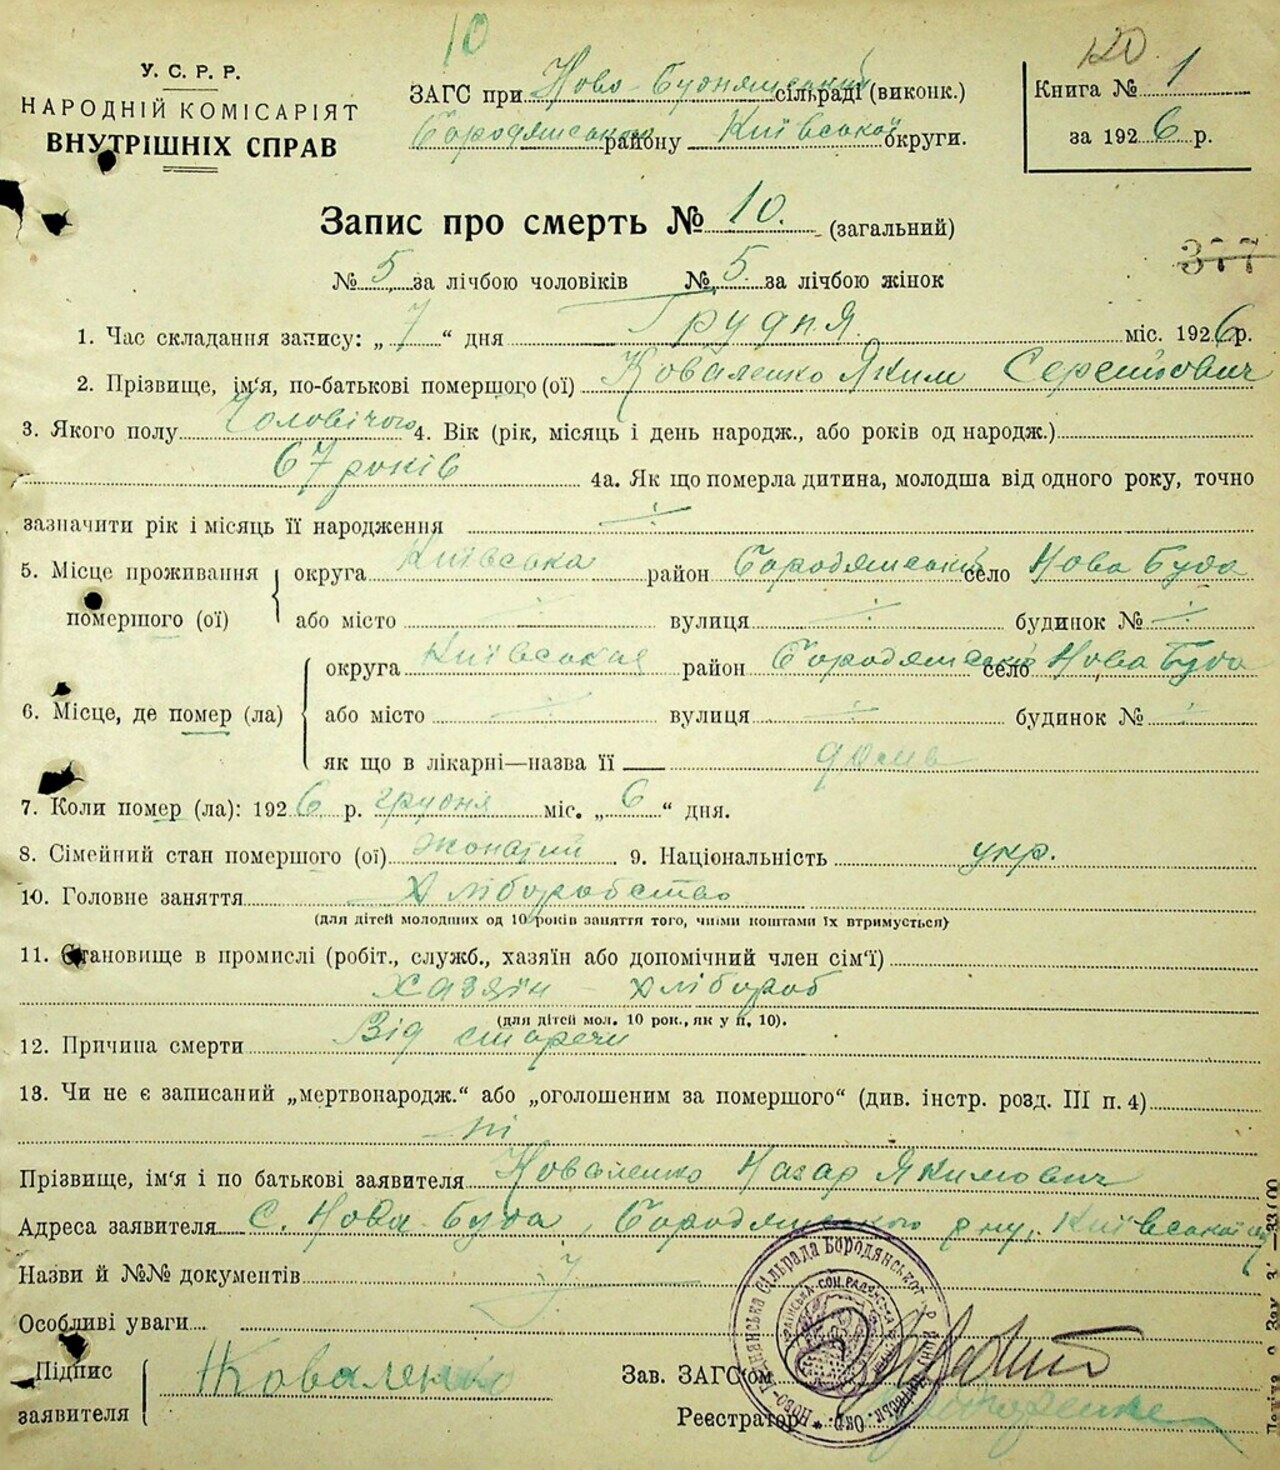 10
120
У. С. Р. Р.
НАРОДНІЙ КОМІСАРІЯТ
ВНУТРІШНІХ СПРАВ
ЗАГС при Ново-Будянський сільраді (виконк.)
Бородянського району Київської округи.
Книга № 1
за 1926 р.
Запис про смерть № 10. (загальний)
377
№ 5 за лічбою чоловіків № 5. за лічбою жінок
1. Час складання запису: „ 7 “ дня Грудня міс. 1926 р.
2. Прізвище, ім'я, по-батькові помершого (ої) Коваленко Яким Сергійович
3. Якого полу Чоловічого 4. Вік (рік, місяць і день народж., або років од народж.)
67 років 4а. Як що померла дитина, молодша від одного року, точно
зазначити рік і місяць її народження
5. Місце проживання помершого (ої)
округа Київська район Бородянський село Нова Буда
або місто вулиця будинок №
6. Місце, де помер (ла)
округа Київська район Бородянськ село Нова Буда
або місто вулиця будинок №
як що в лікарні—назва її дома
7. Коли помер (ла): 1926 р. грудня міс. „ 6 “ дня.
8. Сімейний стан помершого (ої) жонатий 9. Національність укр.
10. Головне заняття Хліборобство
(для дітей молодших од 10 років заняття того, чиїми коштами їх втримується)
11. Становище в промислі (робіт., служб., хазяїн або допомічний член сім'ї)
хазяїн - хлібороб
(для дітей мол. 10 рок., як у п. 10).
12. Причина смерти Від старечи
13. Чи не є записаний „мертвонародж.“ або „оголошеним за помершого“ (див. інстр. розд. III п. 4)
ні
Прізвище, ім'я і по батькові заявителя Коваленко Назар Якимович
Адреса заявителя С. Нова Буда, Бородянського р-ну, Київської
Назви й №№ документів
Особливі уваги
Підпис заявителя Коваленко
Зав. ЗАГС'ом
Реєстратор